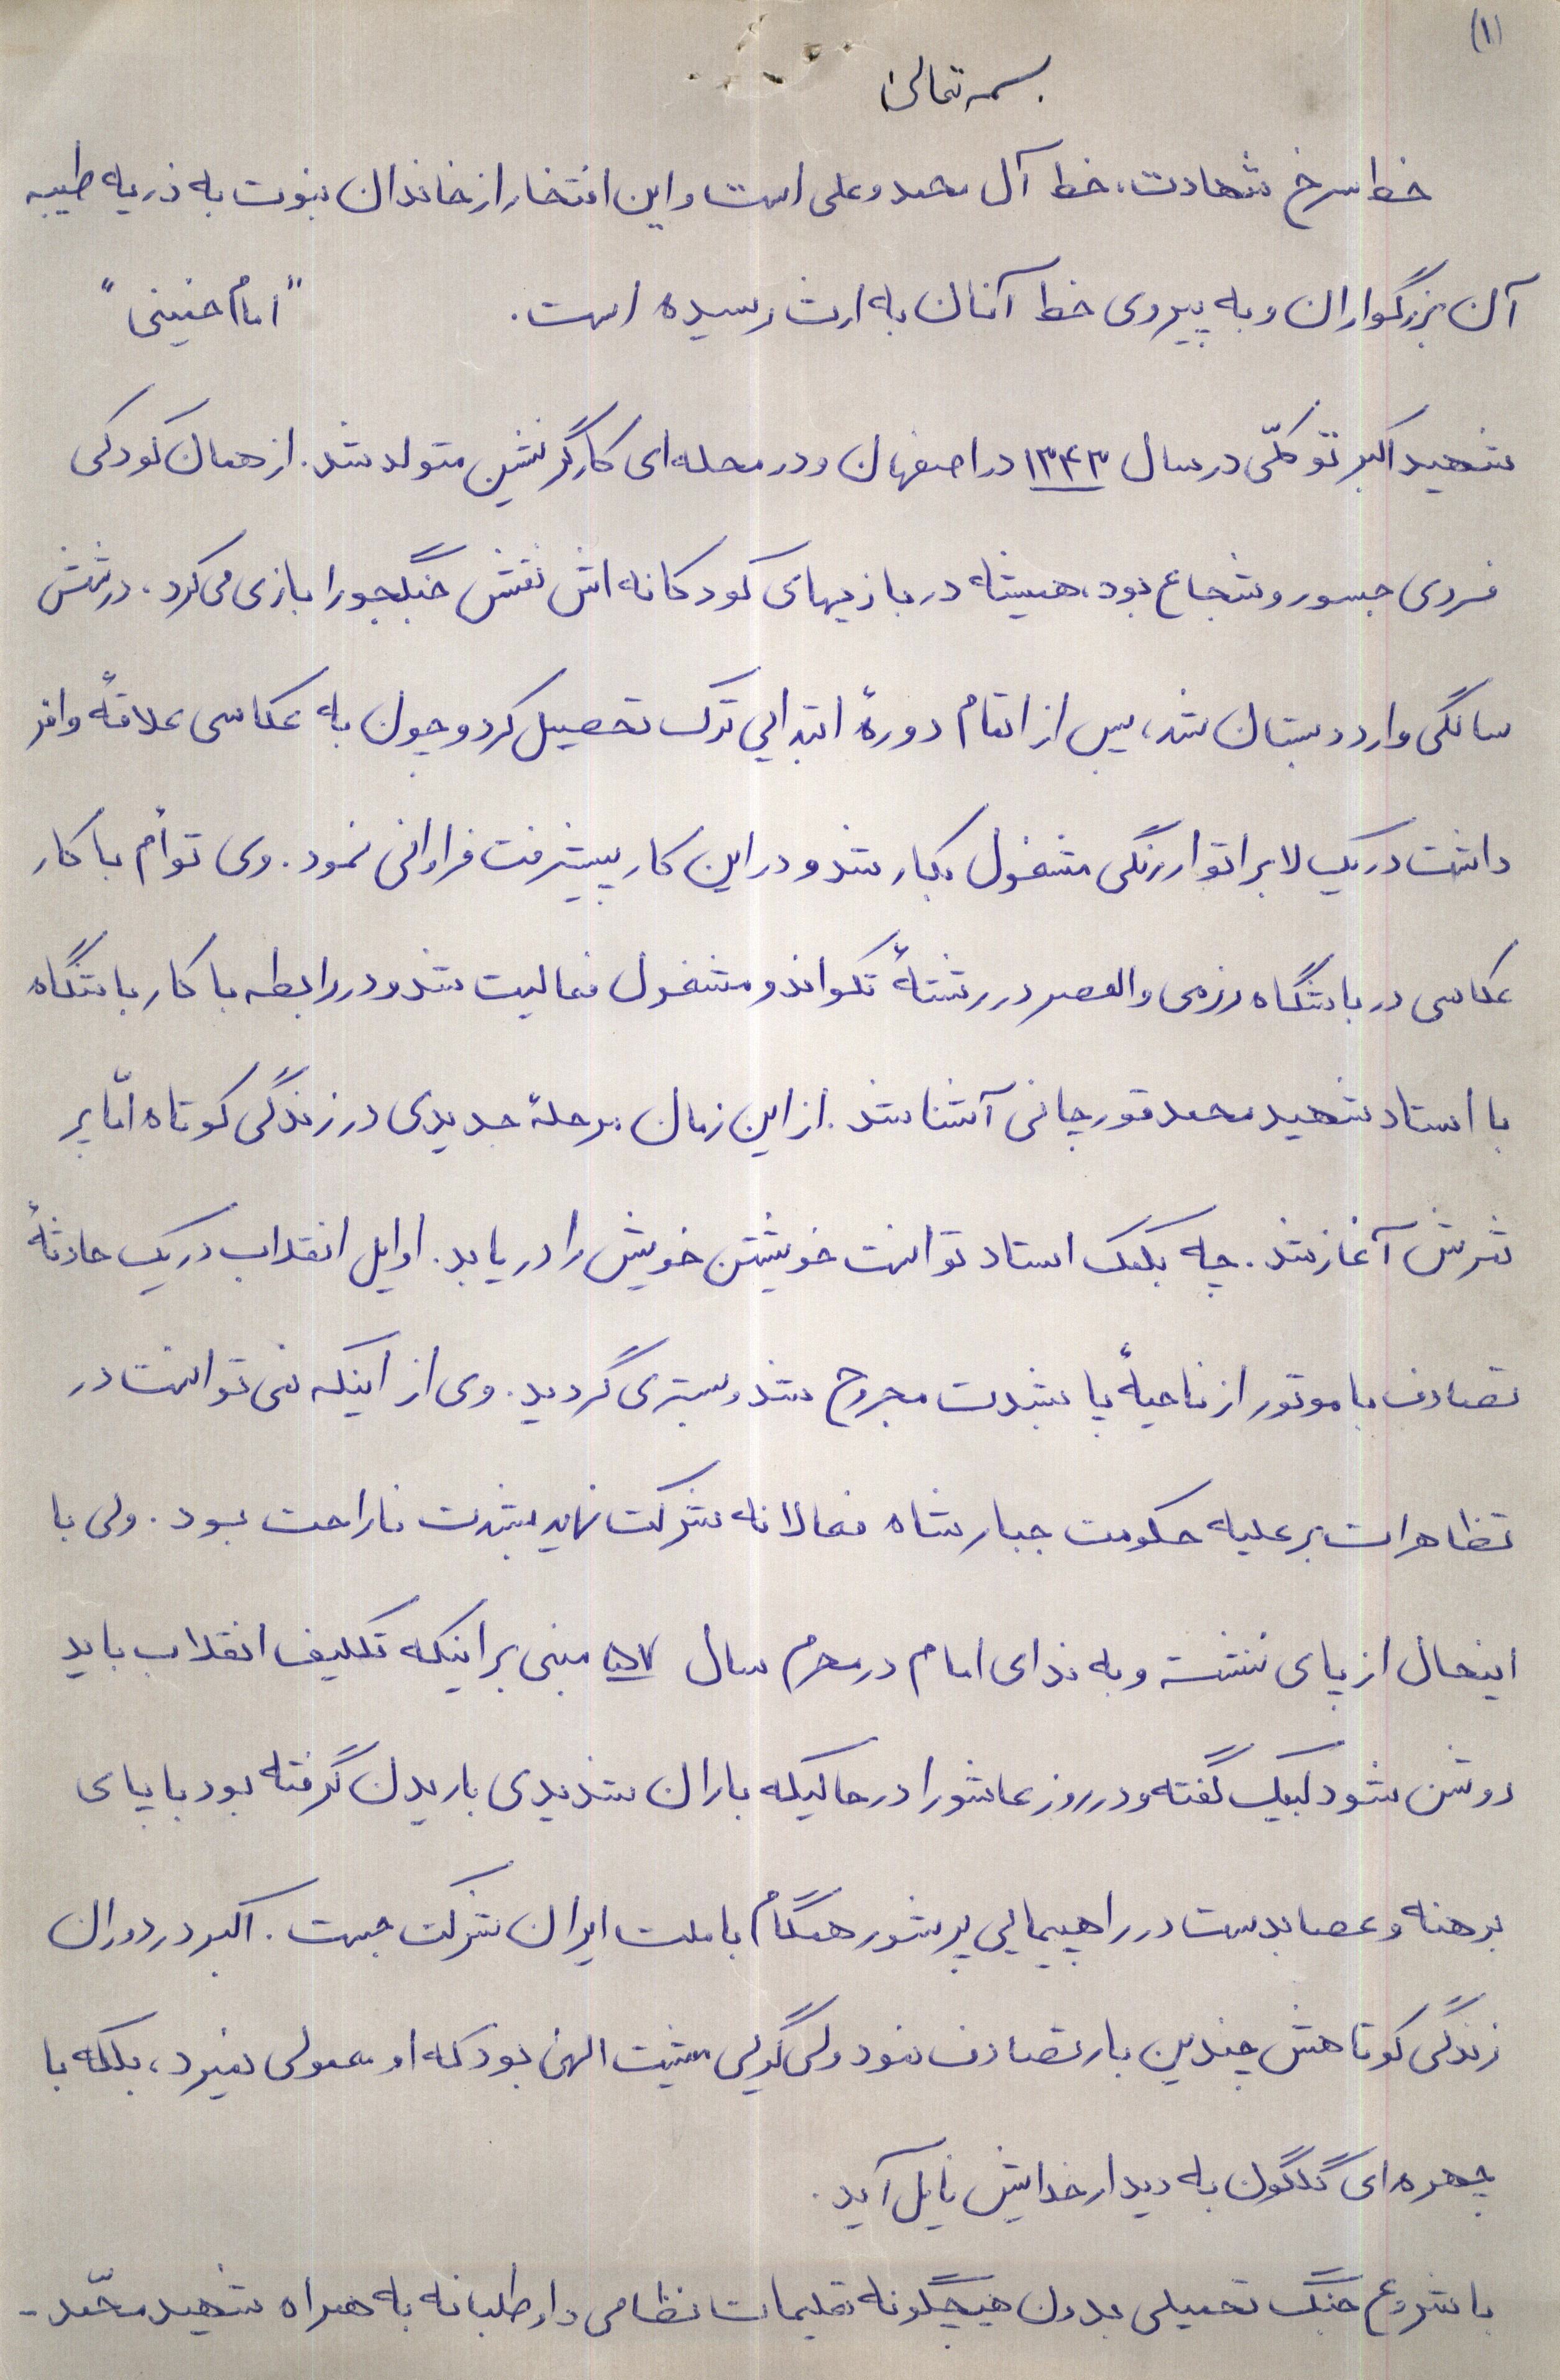 (۱)
بسمه تعالی
خط سرخ شهادت، خط آل محمد و علی است و این افتخار از خاندان نبوت به ذریه طیبه
آن بزرگواران و به پیروی خط آنان به ارث رسیده است. "امام خمینی"
شهید اکبر توکلّی در سال ۱۳۴۳ در اصفهان و در محله‌ای کارگرنشین متولد شد. از همان کودکی
فردی جسور و شجاع بود، همیشه در بازیهای کودکانه اش نقش جنگجو را بازی می‌کرد. در شش
سالگی وارد دبستان شد، پس از اتمام دورهٔ ابتدایی ترک تحصیل کرد و چون به عکاسی علاقهٔ وافر
داشت در یک لابراتوار رنگی مشغول بکار شد و در این کار پیشرفت فراوانی نمود. وی توأم با کار
عکاسی در باشگاه رزمی والعصر در رشتهٔ تکواندو مشغول فعالیت شد و در رابطه با کار باشگاه
با استاد شهید محمد قورچانی آشنا شد. از این زمان مرحلهٔ جدیدی در زندگی کوتاه امّا پر
ثمرش آغاز شد. چه بکمک استاد توانست خویشتن خویش را دریابد. اوایل انقلاب در یک حادثهٔ
تصادف با موتور از ناحیهٔ پا بشدت مجروح شد و بستری گردید. وی از اینکه نمی توانست در
تظاهرات بر علیه حکومت جبار شاه فعالانه شرکت نماید بشدت ناراحت بود. ولی با
اینحال از پای ننشست و به ندای امام در محرم سال ۵۷ مبنی بر اینکه تکلیف انقلاب باید
روشن شود لبیک گفته و در روز عاشورا در حالیکه باران شدیدی باریدن گرفته بود با پای
برهنه و عصا بدست در راهپیمایی پرشور هنگام با ملت ایران شرکت جست. اکبر در دوران
زندگی کوتاهش چندین بار تصادف نمود ولی گویی مشیت الهی بود که او معمولی نمیرد، بلکه با
چهره‌ای گلگون به دیدار خدایش نایل آید.
با شروع جنگ تحمیلی بدون هیچگونه تعلیمات نظامی داوطلبانه به همراه شهید محمّد -